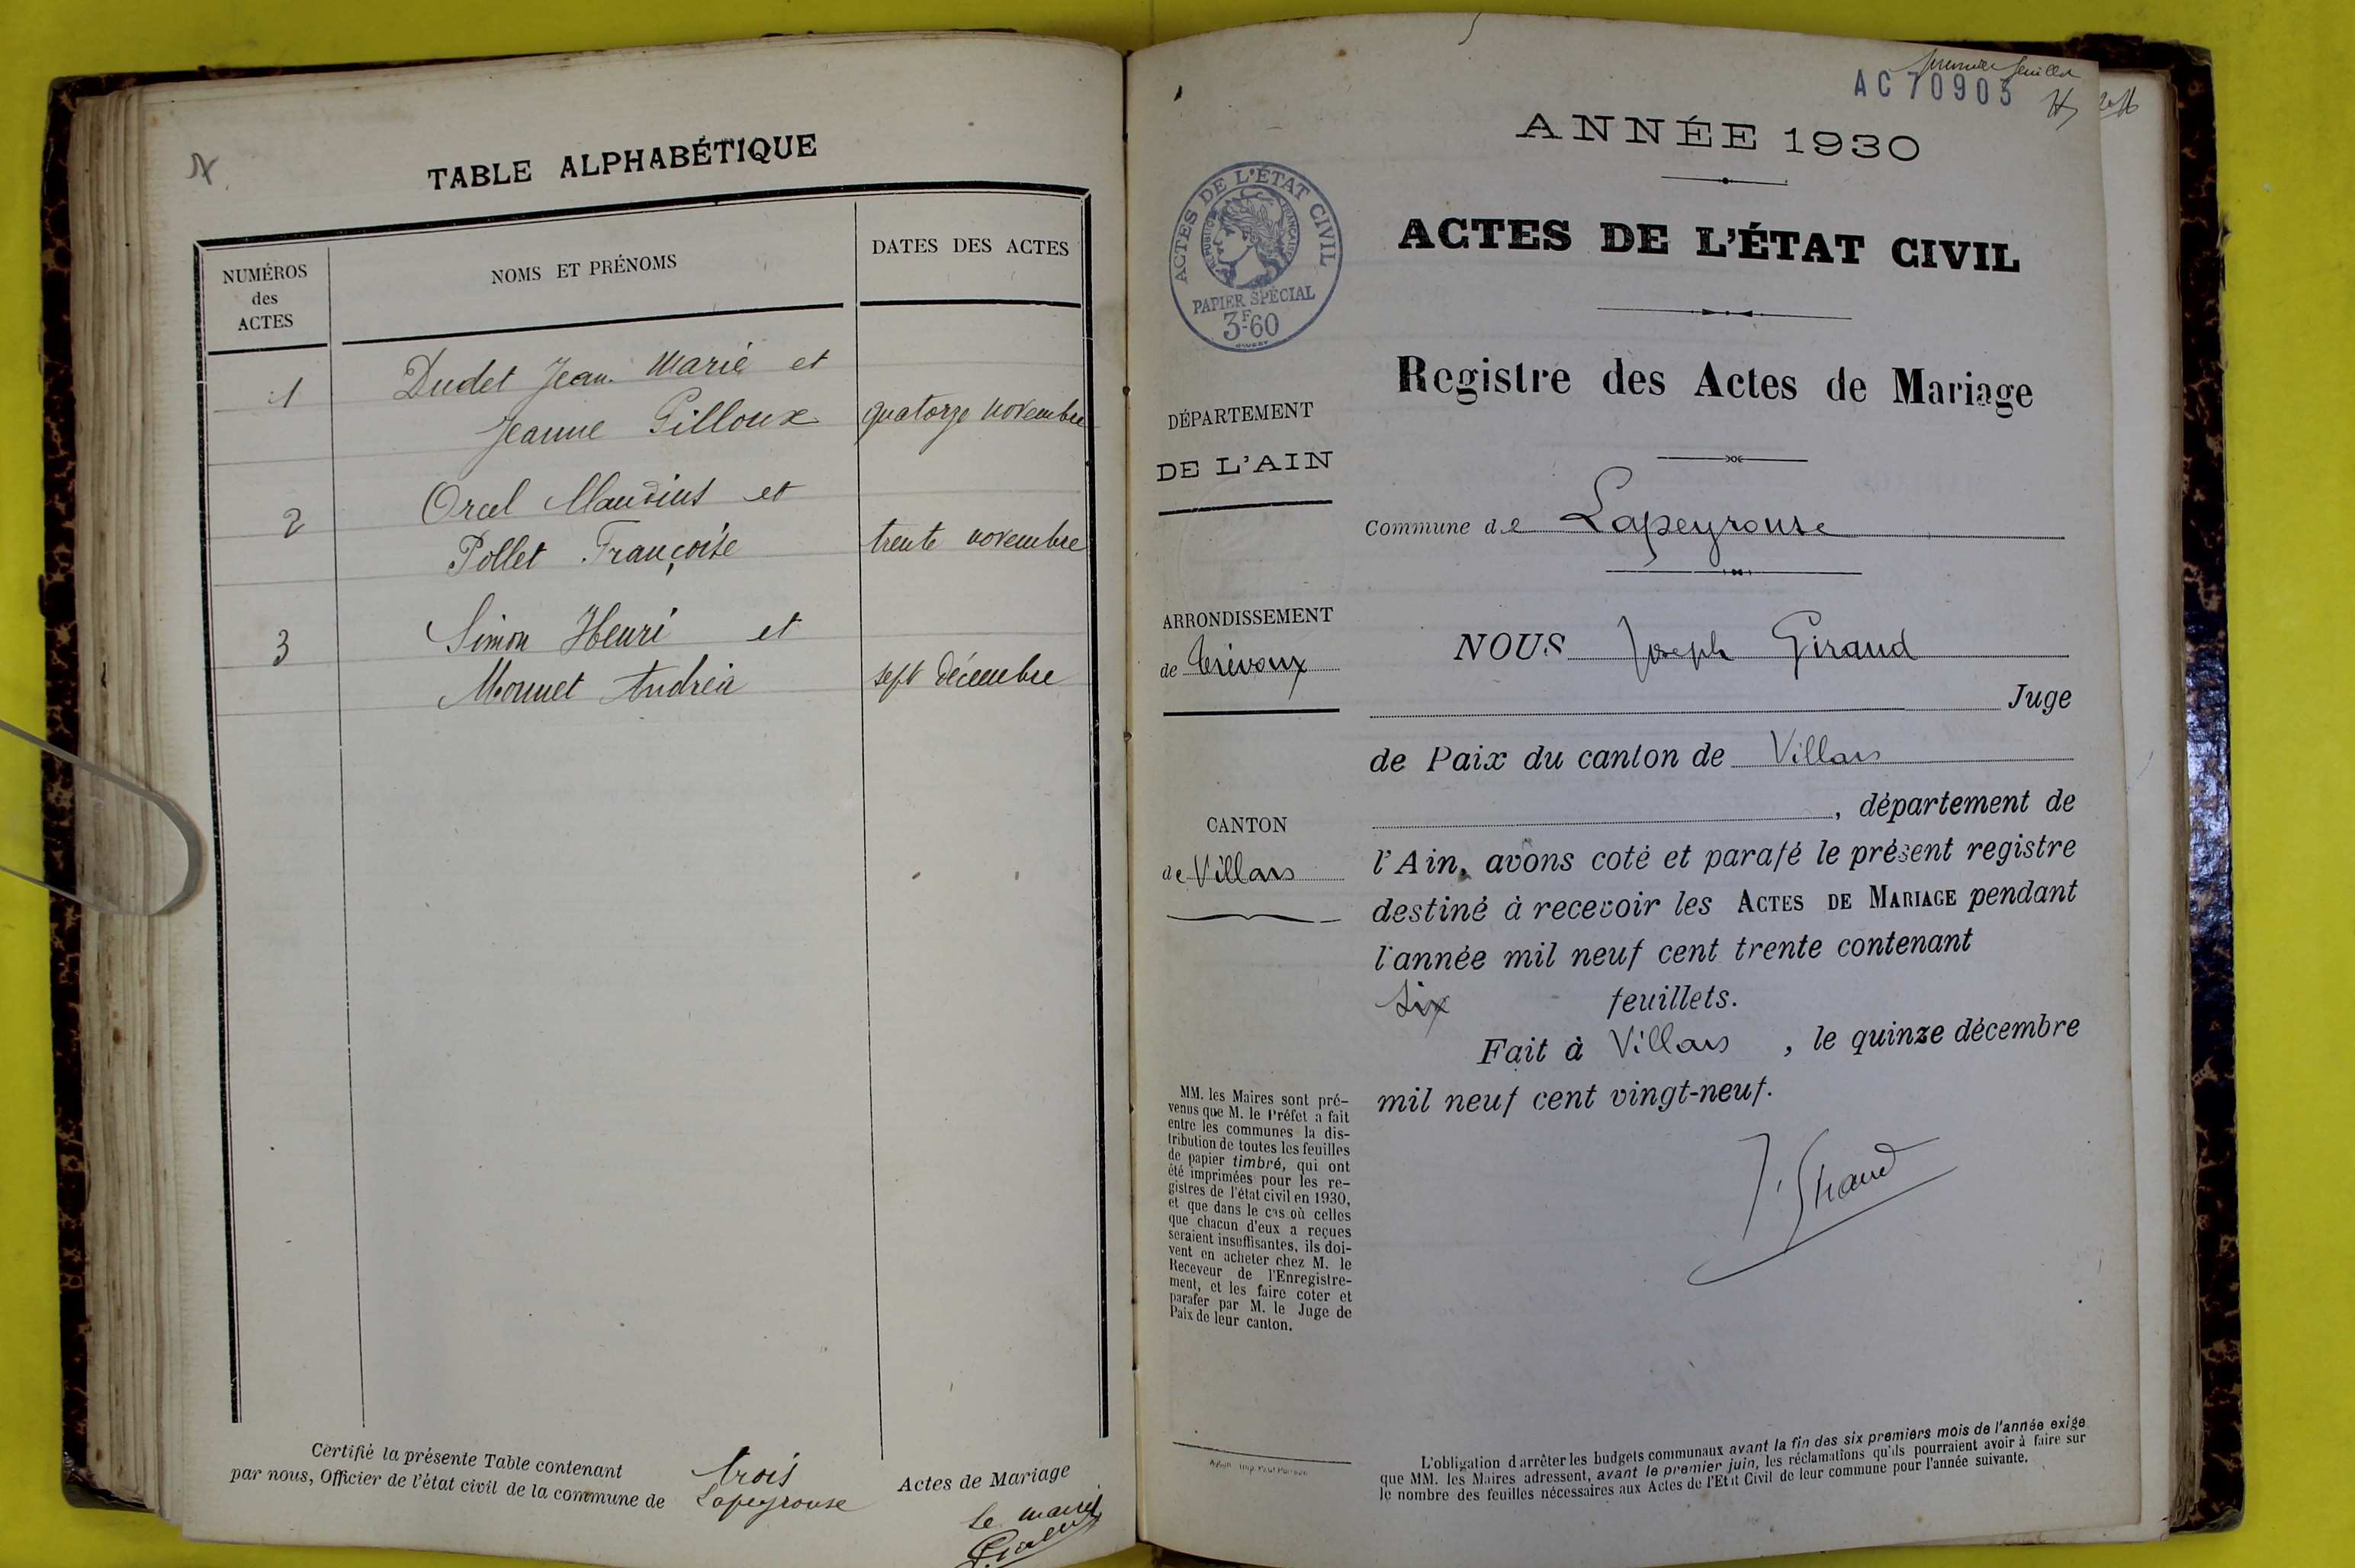 TABLE ALPHABÉTIQUE
NUMÉROS
des
ACTES
NOMS ET PRÉNOMS
DATES DES ACTES
1
Dudet Jean Marie et
Jeanne Gilloux
quatorze novembre
2
Orcel Claudius et
Pollet Françoise
trente novembre
3
Simon Henri et
Monnet Andréa
sept décembre
Certifié la présente Table contenant trois Actes de Mariage
par nous, Officier de l'état civil de la commune de Lapeyrouse
Le maire
premier feuillet
AC 70903
ANNÉE 1930
ACTES DE L'ÉTAT CIVIL
RÉPUBLIQUE FRANÇAISE
PAPIER SPÉCIAL
3F60
ACTES DE L'ÉTAT CIVIL
Registre des Actes de Mariage
DÉPARTEMENT
DE L'AIN
Commune de Lapeyrouse
ARRONDISSEMENT
de Trévoux
CANTON
de Villars
NOUS Joseph Giraud
Juge
de Paix du canton de Villars
, département de
l'Ain, avons coté et parafé le présent registre
destiné à recevoir les ACTES DE MARIAGE pendant
l'année mil neuf cent trente contenant
six feuillets.
Fait à Villars, le quinze décembre
mil neuf cent vingt-neuf.
J. Giraud
MM. les Maires sont pré-
venus que M. le Préfet a fait
entre les communes la dis-
tribution de toutes les feuilles
de papier timbré, qui ont
été imprimées pour les re-
gistres de l'état civil en 1930,
et que dans le cas où celles
que chacun d'eux a reçues
seraient insuffisantes, ils doi-
vent en acheter chez M. le
Receveur de l'Enregistre-
ment, et les faire coter et
parafer par M. le Juge de
Paix de leur canton.
L'obligation d'arrêter les budgets communaux avant la fin des six premiers mois de l'année exige
que MM. les Maires adressent, avant le premier juin, les réclamations qu'ils pourraient avoir à faire sur
le nombre des feuilles nécessaires aux Actes de l'Etat Civil de leur commune pour l'année suivante.